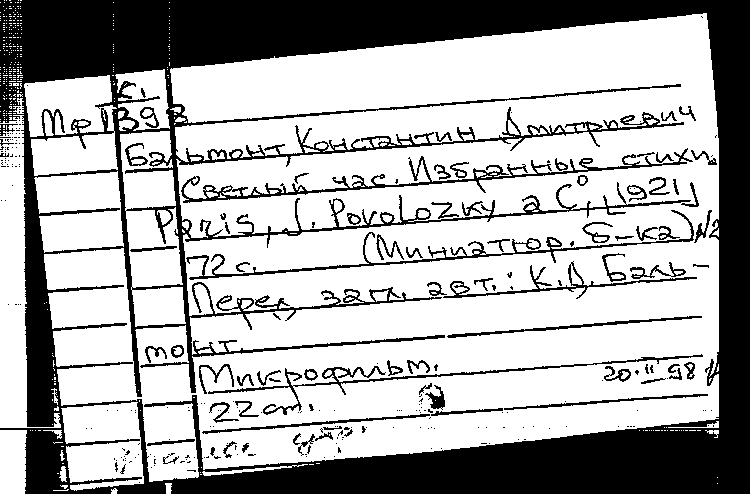 К.
Мф 1398
Бальмонт, Константин Дмитриевич
Светлый час. Избранные стихи.
Paris, J. Povolozky a C°, [1921]
72 с. (Миниатюр. б-ка) №2
Перед загл. авт.: К.Д. Баль-
монт.
Микрофильм.
22 ст. 20.II 98